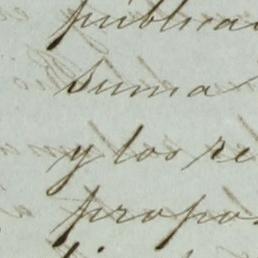 publica
suma
y los re
propo